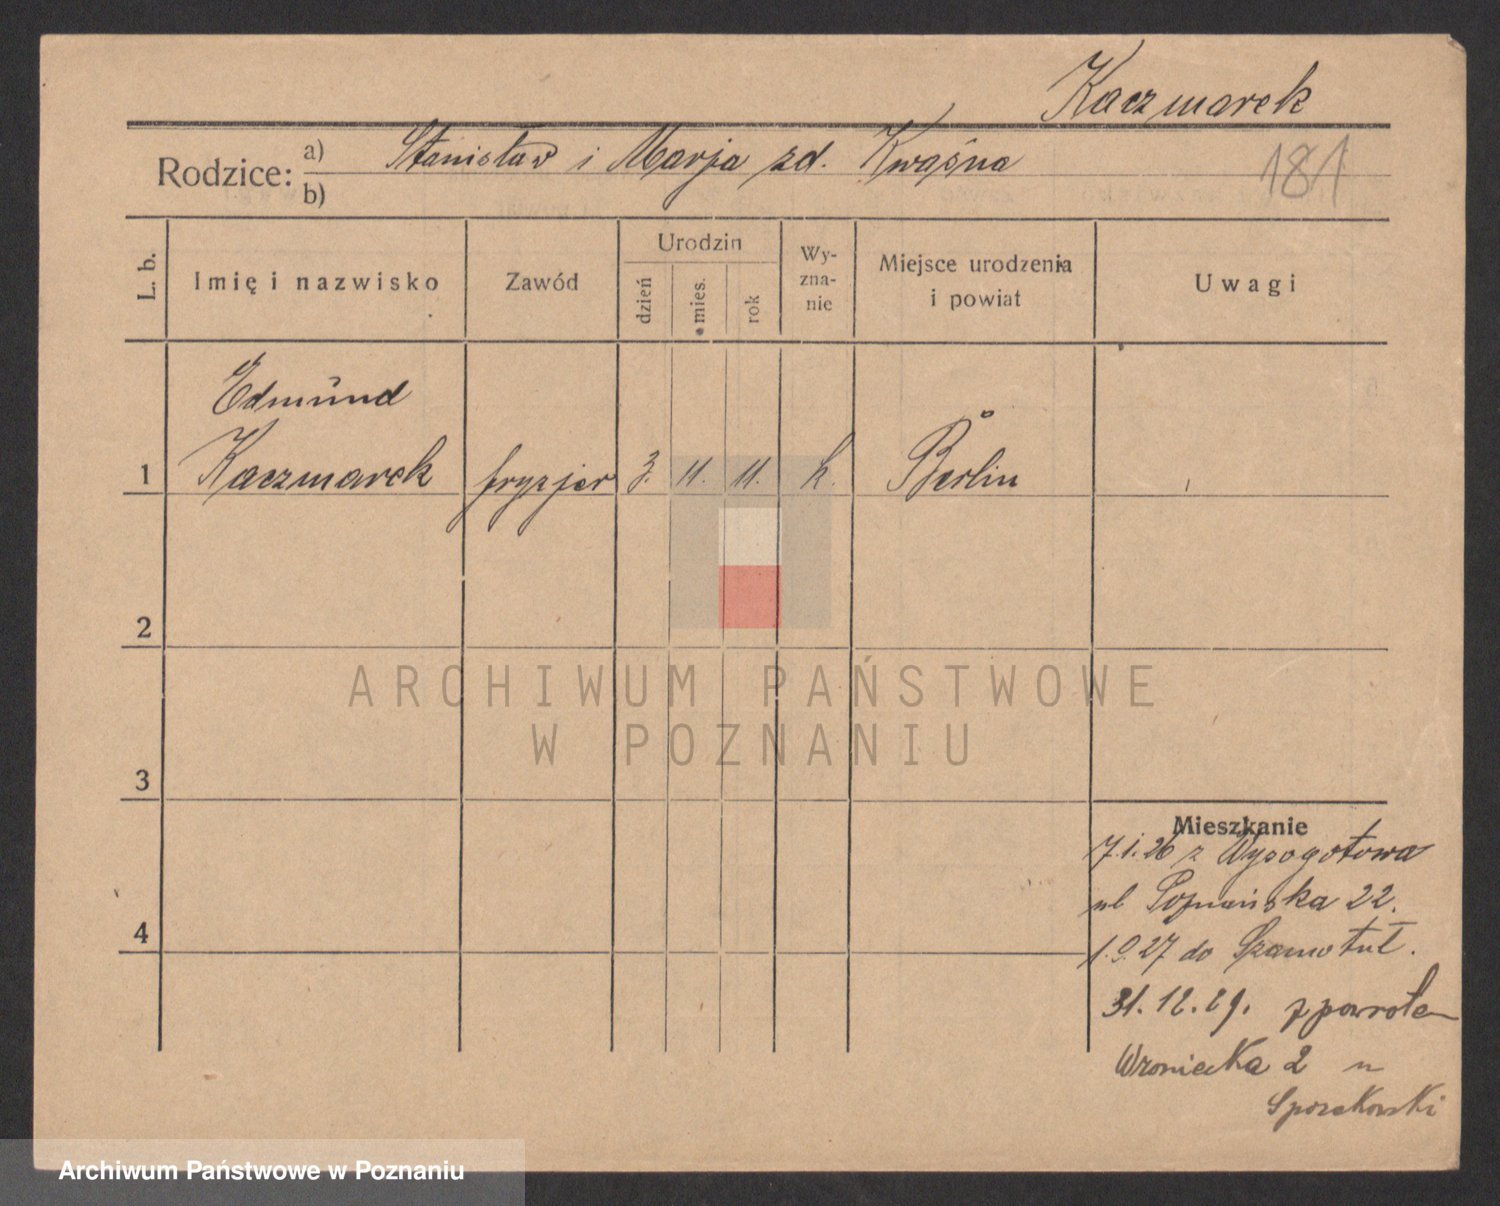 Kaczmarek
Rodzice: a) Stanisław i Marja zd. Kwaśna
b)
181
L. b.
Imię i nazwisko
Zawód
Urodzin
dzień
mies.
rok
Wy-
zna-
nie
Miejsce urodzenia
i powiat
Uwagi
Edmund
1 Kaczmarek fryzjer 3. 11. 11. k. Berlin
2
3
4
ARCHIWUM PAŃSTWOWE
W POZNANIU
Mieszkanie
7.1.26 z Wysogotowa
ul Poznańska 22.
1.9.27 do Szamotuł.
31.12.29. z powrotem
Wroniecka 2 u
Archiwum Państwowe w Poznaniu